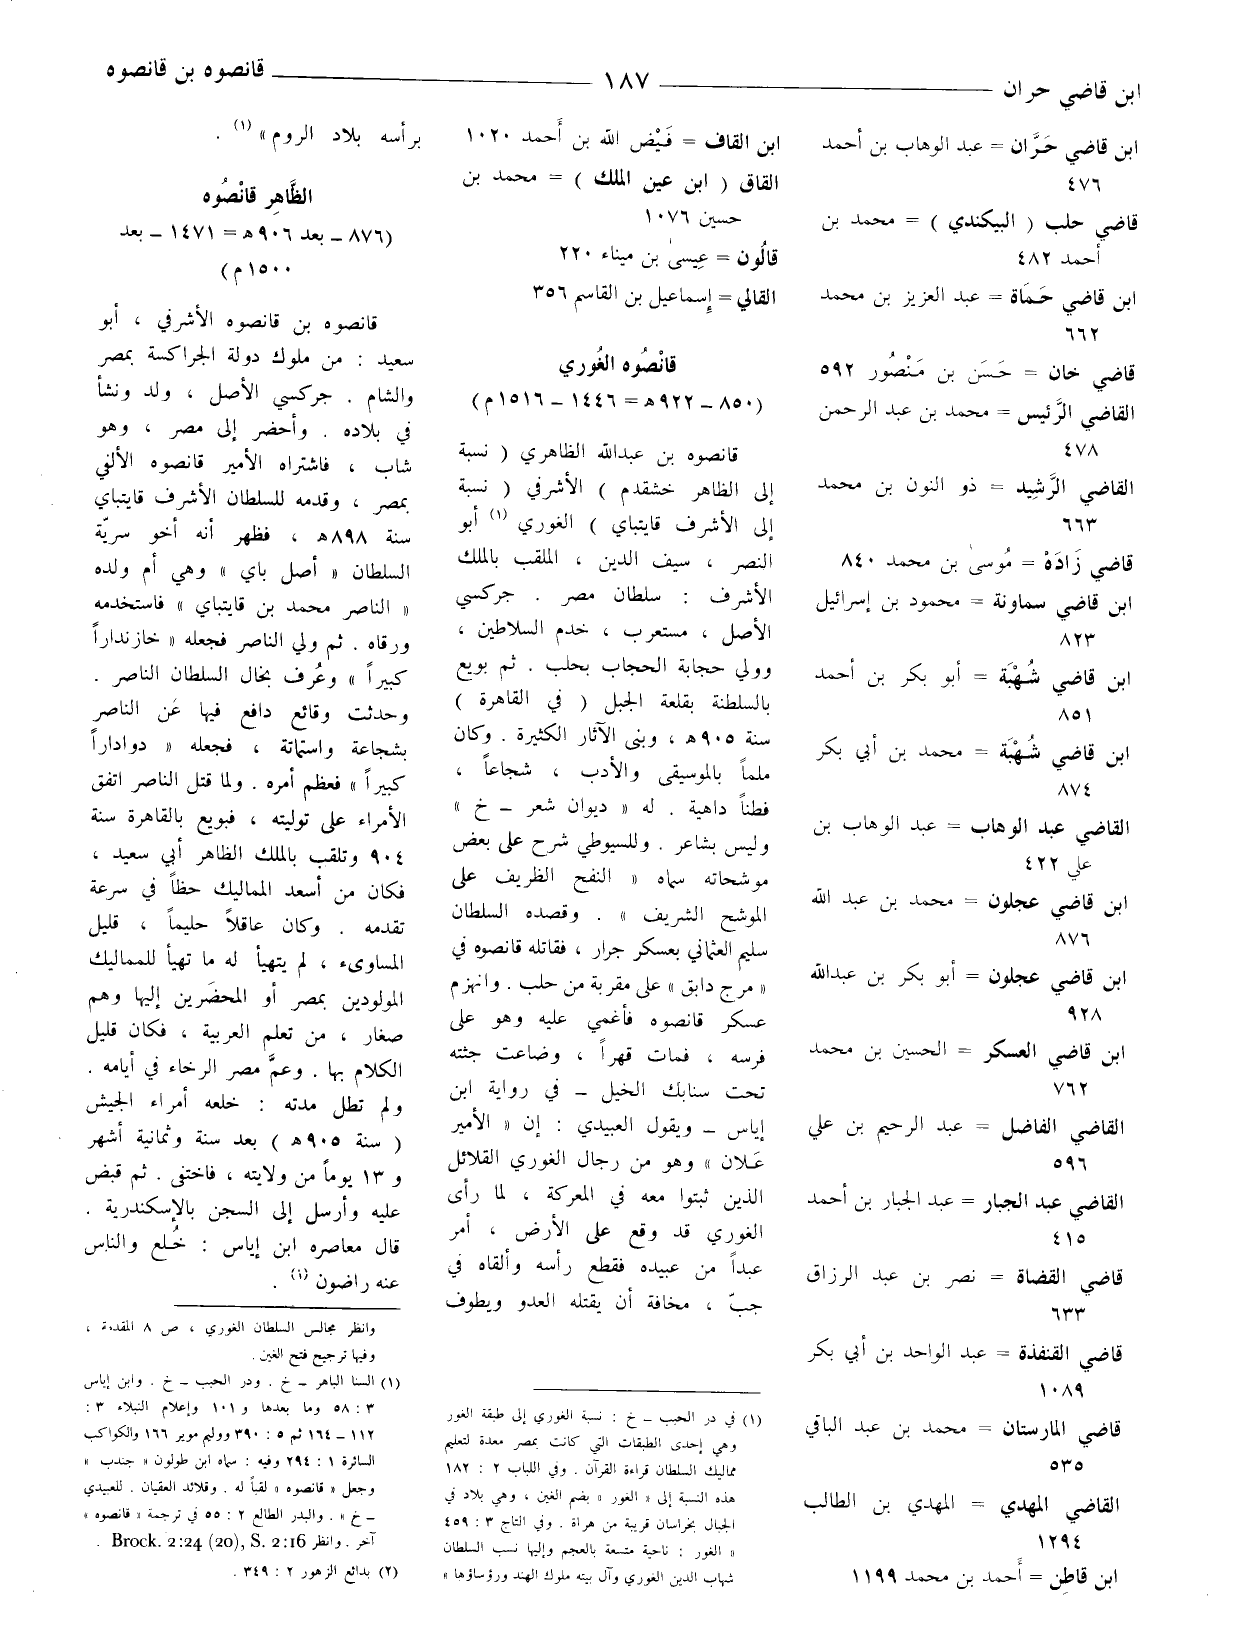 ابن قاضي حران ——— ١٨٧ ——— قانصوه بن قانصوه
ابن قاضي حَرَّان = عبد الوهاب بن أحمد
٤٧٦
قاضي حلب ( البيكندي ) = محمد بن
أحمد ٤٨٢
ابن قاضي حَمَاة = عبد العزيز بن محمد
٦٦٢
قاضي خان = حَسَن بن مَنْصُور ٥٩٢
القاضي الرَّئيس = محمد بن عبد الرحمن
٤٧٨
القاضي الرَّشيد = ذو النون بن محمد
٦٦٣
قاضي زَادَهْ = مُوسىٰ بن محمد ٨٤٠
ابن قاضي سماونة = محمود بن إسرائيل
٨٢٣
ابن قاضي شُهْبَة = أبو بكر بن أحمد
٨٥١
ابن قاضي شُهْبَة = محمد بن أبي بكر
٨٧٤
القاضي عبد الوهاب = عبد الوهاب بن
علي ٤٢٢
ابن قاضي عجلون = محمد بن عبد الله
٨٧٦
ابن قاضي عجلون = أبو بكر بن عبدالله
٩٢٨
ابن قاضي العسكر = الحسين بن محمد
٧٦٢
القاضي الفاضل = عبد الرحيم بن علي
٥٩٦
القاضي عبد الجبار = عبد الجبار بن أحمد
٤١٥
قاضي القضاة = نصر بن عبد الرزاق
٦٣٣
قاضي القنفذة = عبد الواحد بن أبي بكر
١٠٨٩
قاضي المارستان = محمد بن عبد الباقي
٥٣٥
القاضي المهدي = المهدي بن الطالب
١٢٩٤
ابن قاطِن = أَحمد بن محمد ١١٩٩
ابن القاف = فَيْض الله بن أَحمد ١٠٢٠
القاق ( ابن عين الملك ) = محمد بن
حسين ١٠٧٦
قالُون = عِيسىٰ بن ميناء ٢٢٠
القالي = إِسماعيل بن القاسم ٣٥٦
قانْصُوه الغُوري
(٨٥٠ ــ ٩٢٢ هـ = ١٤٤٦ ــ ١٥١٦ م)
قانصوه بن عبدالله الظاهري ( نسبة
إلى الظاهر خشقدم ) الأشرفي ( نسبة
إلى الأشرف قايتباي ) الغوري (١) أبو
النصر ، سيف الدين ، الملقب بالملك
الأشرف : سلطان مصر . جركسي
الأصل ، مستعرب ، خدم السلاطين ،
وولي حجابة الحجاب بحلب . ثم بويع
بالسلطنة بقلعة الجبل ( في القاهرة )
سنة ٩٠٥ هـ ، وبنى الآثار الكثيرة . وكان
ملماً بالموسيقى والأدب ، شجاعاً ،
فطناً داهية . له « ديوان شعر ــ خ »
وليس بشاعر . وللسيوطي شرح على بعض
موشحاته سماه « النفح الظريف على
الموشح الشريف » . وقصده السلطان
سليم العثماني بعسكر جرار ، فقاتله قانصوه في
« مرج دابق » على مقربة من حلب . وانهزم
عسكر قانصوه فأغمي عليه وهو على
فرسه ، فمات قهراً ، وضاعت جثته
تحت سنابك الخيل ــ في رواية ابن
إياس ــ ويقول العبيدي : إن « الأمير
عَلان » وهو من رجال الغوري القلائل
الذين ثبتوا معه في المعركة ، لما رأى
الغوري قد وقع على الأرض ، أمر
عبداً من عبيده فقطع رأسه وألقاه في
جبّ ، مخافة أن يقتله العدو ويطوف
(١) في در الحبب ــ خ : نسبة الغوري إلى طبقة الغور
وهي إحدى الطبقات التي كانت بمصر معدة لتعليم
مماليك السلطان قراءة القرآن . وفي اللباب ٢ : ١٨٢
هذه النسبة إلى « الغور » بضم الغين ، وهي بلاد في
الجبال بخراسان قريبة من هراة . وفي التاج ٣ : ٤٥٩
« الغور : ناحية متسعة بالعجم وإليها نسب السلطان
شهاب الدين الغوري وآل بيته ملوك الهند ورؤساؤها »
برأسه بلاد الروم » (١) .
الظَّاهِر قانْصُوه
(٨٧٦ ــ بعد ٩٠٦ هـ = ١٤٧١ ــ بعد
١٥٠٠ م)
قانصوه بن قانصوه الأشرفي ، أبو
سعيد : من ملوك دولة الجراكسة بمصر
والشام . جركسي الأصل ، ولد ونشأ
في بلاده . وأحضر إلى مصر ، وهو
شاب ، فاشتراه الأمير قانصوه الألفي
بمصر ، وقدمه للسلطان الأشرف قايتباي
سنة ٨٩٨ هـ ، فظهر أنه أخو سريّة
السلطان « أصل باي » وهي أم ولده
« الناصر محمد بن قايتباي » فاستخدمه
ورقاه . ثم ولي الناصر فجعله « خازنداراً
كبيراً » وعُرف بخال السلطان الناصر .
وحدثت وقائع دافع فيها عَن الناصر
بشجاعة واستماتة ، فجعله « دواداراً
كبيراً » فعظم أمره . ولما قتل الناصر اتفق
الأمراء على توليته ، فبويع بالقاهرة سنة
٩٠٤ وتلقب بالملك الظاهر أبي سعيد ،
فكان من أسعد المماليك حظاً في سرعة
تقدمه . وكان عاقلاً حليماً ، قليل
المساوىء ، لم يتهيأ له ما تهيأ للمماليك
المولودين بمصر أو المحضَرين إليها وهم
صغار ، من تعلم العربية ، فكان قليل
الكلام بها . وعمَّ مصر الرخاء في أيامه .
ولم تطل مدته : خلعه أمراء الجيش
( سنة ٩٠٥ هـ ) بعد سنة وثمانية أشهر
و ١٣ يوماً من ولايته ، فاختفى . ثم قبض
عليه وأرسل إلى السجن بالإسكندرية .
قال معاصره ابن إياس : خُلع والناس
عنه راضون (١) .
وانظر مجالس السلطان الغوري ، ص ٨ المقدمة ،
وفيها ترجيح فتح الغين .
(١) السنا الباهر ــ خ . ودر الحبب ــ خ . وابن إياس
٣ : ٥٨ وما بعدها و ١٠١ وإعلام النبلاء ٣ :
١١٢ ــ ١٦٤ ثم ٥ : ٣٩٠ ووليم موير ١٦٦ والكواكب
السائرة ١ : ٢٩٤ وفيه : سماه ابن طولون « جندب »
وجعل « قانصوه » لقباً له . وقلائد العقيان . للعبيدي
ــ خ » . والبدر الطالع ٢ : ٥٥ في ترجمة « قانصوه »
آخر . وانظر Brock. 2:24 (20), S. 2:16 .
(٢) بدائع الزهور ٢ : ٣٤٩ .